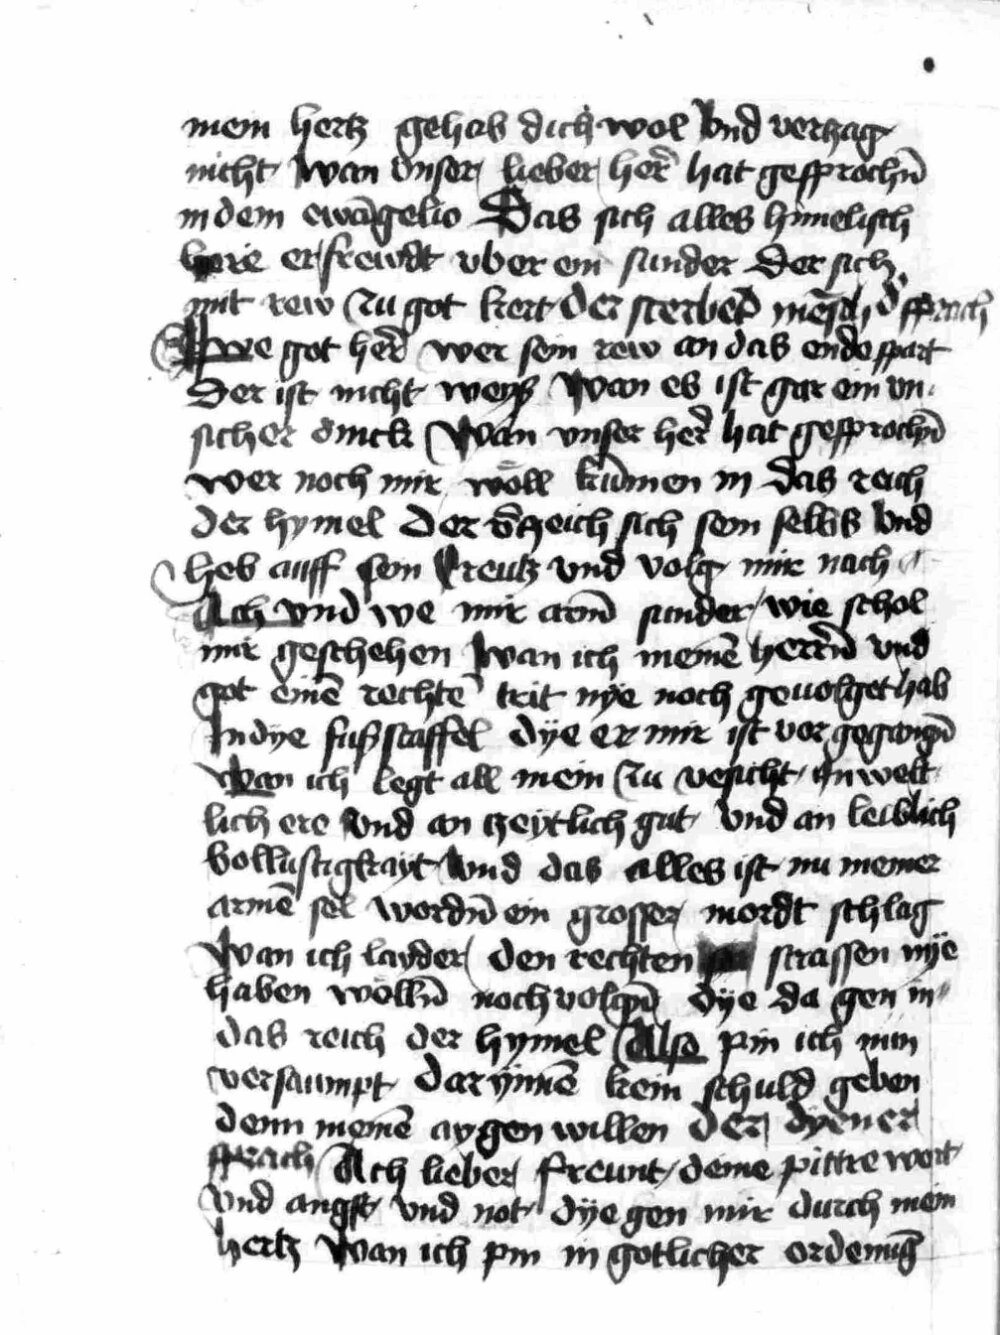 mein hertz gehab dich wol Vnd verzag
nicht Wan vnser lieber her̄ hat gesprochn̄
in dem ewāgelio Das sich alles himelisch
here erfrewdt vber ein sunder Der sich
mit rew zu got kert der sterbēd mēsch d' sprach
Awe got her̄ wer sein rew an das ende spart
Der ist nicht weyß Wan es ist gar ein vn
sicher dinck Wan vnser her̄ hat gesprochn̄
wer noch mir wöll kūmen in das reich
der hymel Der v̄zeich sich sein selbs Vnd
heb auff sein Creutz vnd volg mir nach
Ach vnd we mir armē sunder wie schol
mir geschehen Wan ich meinē herrn̄ vnd
got einē rechtē trit nye noch geuolget hab
In dye fußstaffel dye er mir ist vor gegangn̄
Wan ich legt all mein zu versicht An welt
lich ere Vnd an zeytlich gut Vnd an leiblich
bollustigkayt Vnd das alles ist nu meiner
armē sel wordn̄ ein grosser mordt schlag
Wan ich layder den rechten strassen nye
haben wölln̄ noch volgn̄ dye da gen in
das reich der hymel Also pin ich nun
versaumpt dar ynnē kein schuld geben
denn meinē aygen willen der dyener
sprach Ach lieber freunt deine pittre wort
Vnd angst vnd not dye gen mir durch mein
hertz Wan ich pin in gotlicher ordenūg